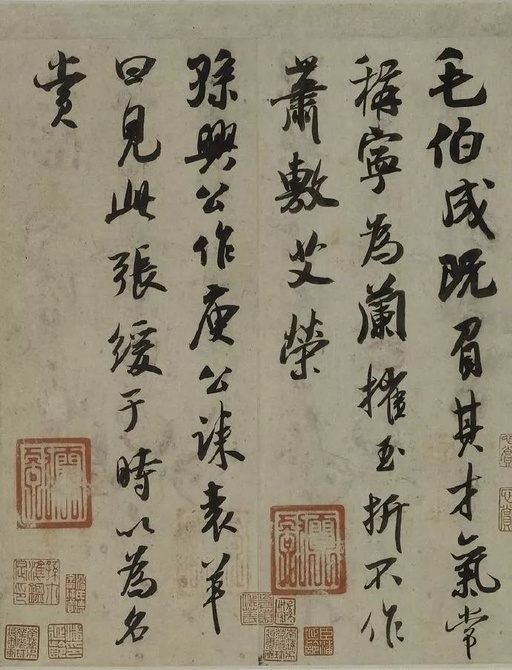 毛伯成既負其才氣常
稱寧為蘭摧玉折不作
蕭敷艾榮
孫興公作庾公誄袁羊
曰見此張緩于時以為名
賞